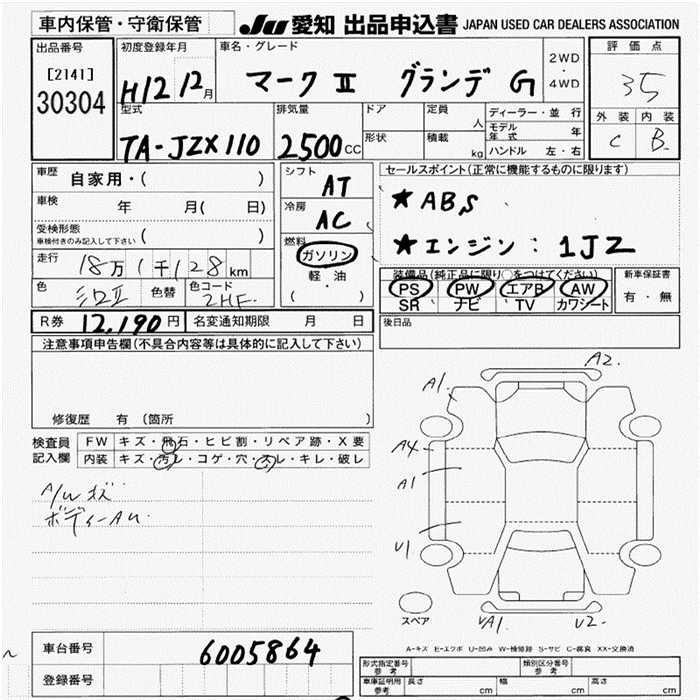 車内保管・守衛保管 JU 愛知 出品申込書 JAPAN USED CAR DEALERS ASSOCIATION
出品番号 初度登録年月 車名・グレード 2WD・4WD 評価点
[2141] 30304 H12 12月 マークⅡ グランデ G 35
型式 排気量 ドア 定員 人 ディーラー・並行 外装 内装
TA-JZX110 2500cc 形状 積載 kg モデル年式 年 C B
ハンドル 左・右
車歴 自家用・( ) シフト AT セールスポイント(正常に機能するものに限ります)
車検 年 月( 日) 冷房 AC ★ABS
受検形態 ( )
車検付きのみ記入して下さい
燃料 ガソリン 軽・油 ( ) ★エンジン:1JZ
走行 18万1千128km
装備品(純正品に限り○をつけてください) 新車保証書
色 色替 色コード 2HF PS PW エアB AW 有・無
SR ナビ TV カワシート
R券 12,190円 名変通知期限 月 日 後日品
注意事項申告欄(不具合内容等は具体的に記入して下さい)
修復歴 有(箇所 )
検査員記入欄 FW キズ・飛石・ヒビ割・リペア跡・X要
内装 キズ・汚レ・コゲ・穴・スレ・キレ・破レ
A/W キズ
ボディーAU
A2.
A1
A4
A1
U1
スペア UA1 U2.
A-キズ E-エクボ U-凹み W-補修跡 S-サビ C-腐食 XX-交換済
車台番号 6005864
登録番号
形式指定番号 参考 類別区分番号 参考
車庫証明用 参考 長さ cm 幅 cm 高さ cm